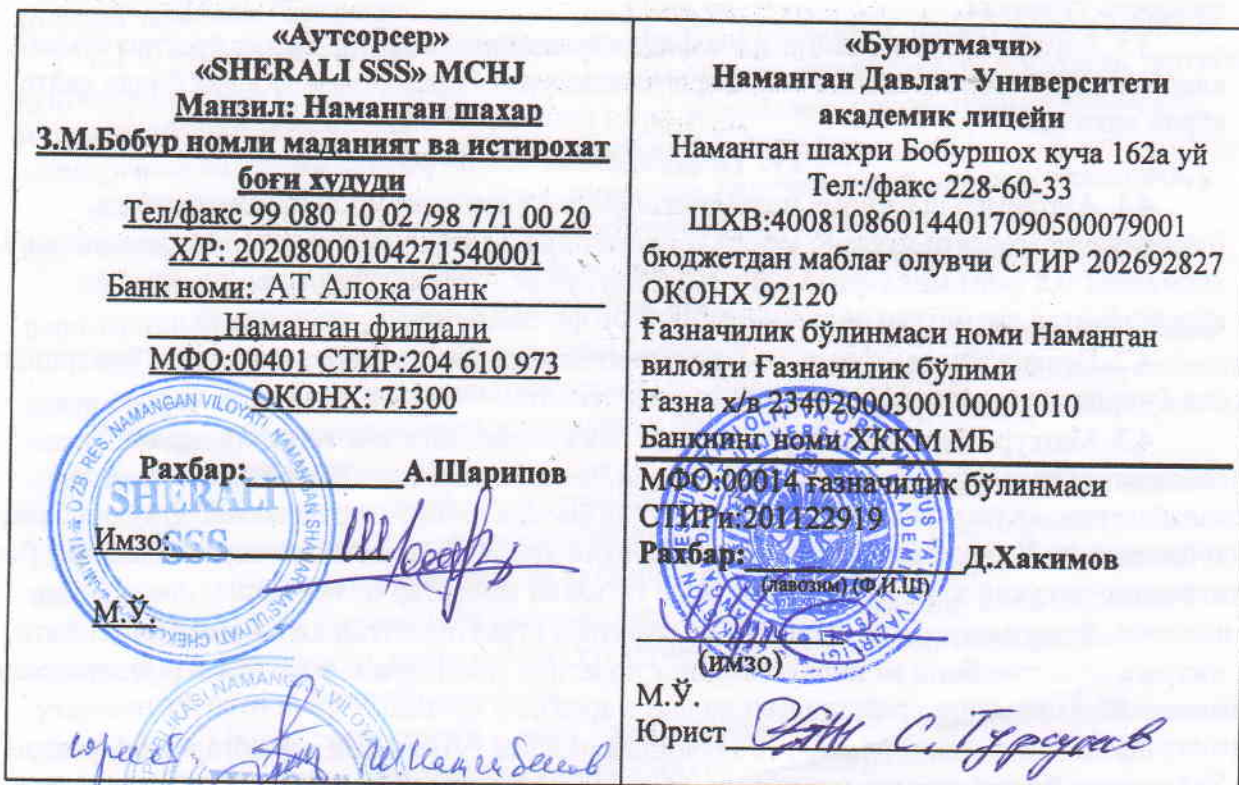 «Аутсорсер»
«SHERALI SSS» MCHJ
Манзил: Наманган шахар
З.М.Бобур номли маданият ва истирохат
боғи худуди
Тел/факс 99 080 10 02 /98 771 00 20
Х/Р: 20208000104271540001
Банк номи: АТ Алоқа банк
Наманган филиали
МФО:00401 СТИР:204 610 973
ОКОНХ: 71300
Рахбар: А.Шарипов
Имзо:
М.Ў.
SHERALI
SSS
NAMANGAN VILOYATI
юрист:
«Буюртмачи»
Наманган Давлат Университети
академик лицейи
Наманган шахри Бобуршох куча 162а уй
Тел:/факс 228-60-33
ШХВ:400810860144017090500079001
бюджетдан маблағ олувчи СТИР 202692827
ОКОНХ 92120
Ғазначилик бўлинмаси номи Наманган
вилояти Ғазначилик бўлими
Ғазна х/в 23402000300100001010
Банкнинг номи ХККМ МБ
МФО:00014 ғазначилик бўлинмаси
СТИРи:201122919
Рахбар: Д.Хакимов
(лавозим) (Ф.И.Ш)
(имзо)
М.Ў
Юрист С. Турсунов